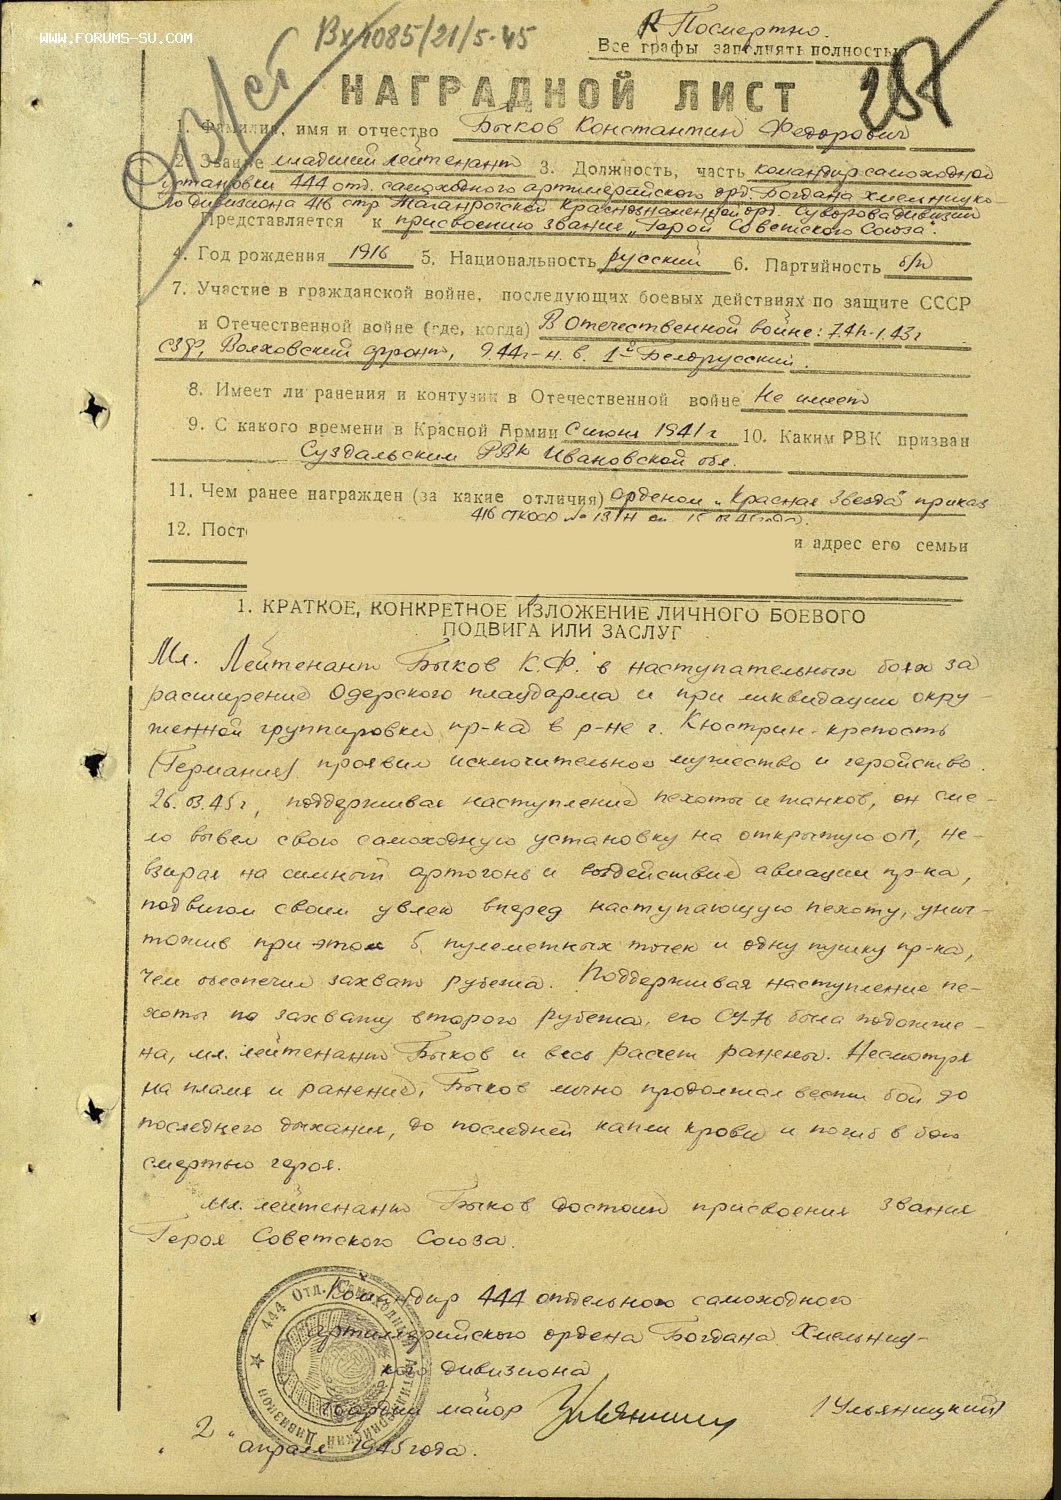 WWW.FORUMS-SU.COM
Вх 1085/21/5-45
Посмертно.
Все графы заполнять полностью
НАГРАДНОЙ ЛИСТ
1. Фамилия, имя и отчество Быков Константин Федорович
2. Звание младший лейтенант 3. Должность, часть командир самоходной
установки 444 отд. самоходного артиллерийского орд. Богдана Хмельницко-
го дивизиона 416 стр. Таганрогской Краснознаменной орд. Суворова дивизии
Представляется к присвоению звания „Герой Советского Союза".
4. Год рождения 1916 5. Национальность русский 6. Партийность б/п
7. Участие в гражданской войне, последующих боевых действиях по защите СССР
и Отечественной войне (где, когда) В Отечественной войне: 7.41-1.43г
СЗФ, Волховский фронт, 9.44г-н.в. 1й Белорусский.
8. Имеет ли ранения и контузии в Отечественной войне Не имеет
9. С какого времени в Красной Армии С июня 1941г 10. Каким РВК призван
Суздальским РВК Ивановской обл.
11. Чем ранее награжден (за какие отличия) орденом „Красная Звезда" приказ
416
12. Пост и адрес его семьи
1. КРАТКОЕ, КОНКРЕТНОЕ ИЗЛОЖЕНИЕ ЛИЧНОГО БОЕВОГО
ПОДВИГА ИЛИ ЗАСЛУГ
Мл. Лейтенант Быков К.Ф. в наступательных боях за
расширение Одерского плацдарма и при ликвидации окру-
женной группировки пр-ка в р-не г. Кюстрин-крепость
(Германия) проявил исключительное мужество и геройство.
26.03.45г, поддерживая наступление пехоты и танков, он сме-
ло вывел свою самоходную установку на открытую ОП, не-
взирая на сильный артогонь и воздействие авиации пр-ка,
подвигом своим увлек вперед наступающую пехоту, унич-
тожив при этом 5 пулеметных точек и одну пушку пр-ка,
чем обеспечил захват рубежа. Поддерживая наступление пе-
хоты по захвату второго рубежа, его СУ-76 была подожже-
на, мл. лейтенант Быков и весь расчет ранены. Несмотря
на пламя и ранение, Быков лично продолжал вести бой до
последнего дыхания, до последней капли крови и погиб в бою
смертью героя.
Мл. лейтенант Быков достоин присвоения звания
Героя Советского Союза.
Командир 444 отдельного самоходного
артиллерийского ордена Богдана Хмельниц-
кого дивизиона
гвардии майор /Ульяницкий/
„2" апреля 1945 года.
444 Отд. Самоходный Артиллерийский Дивизион